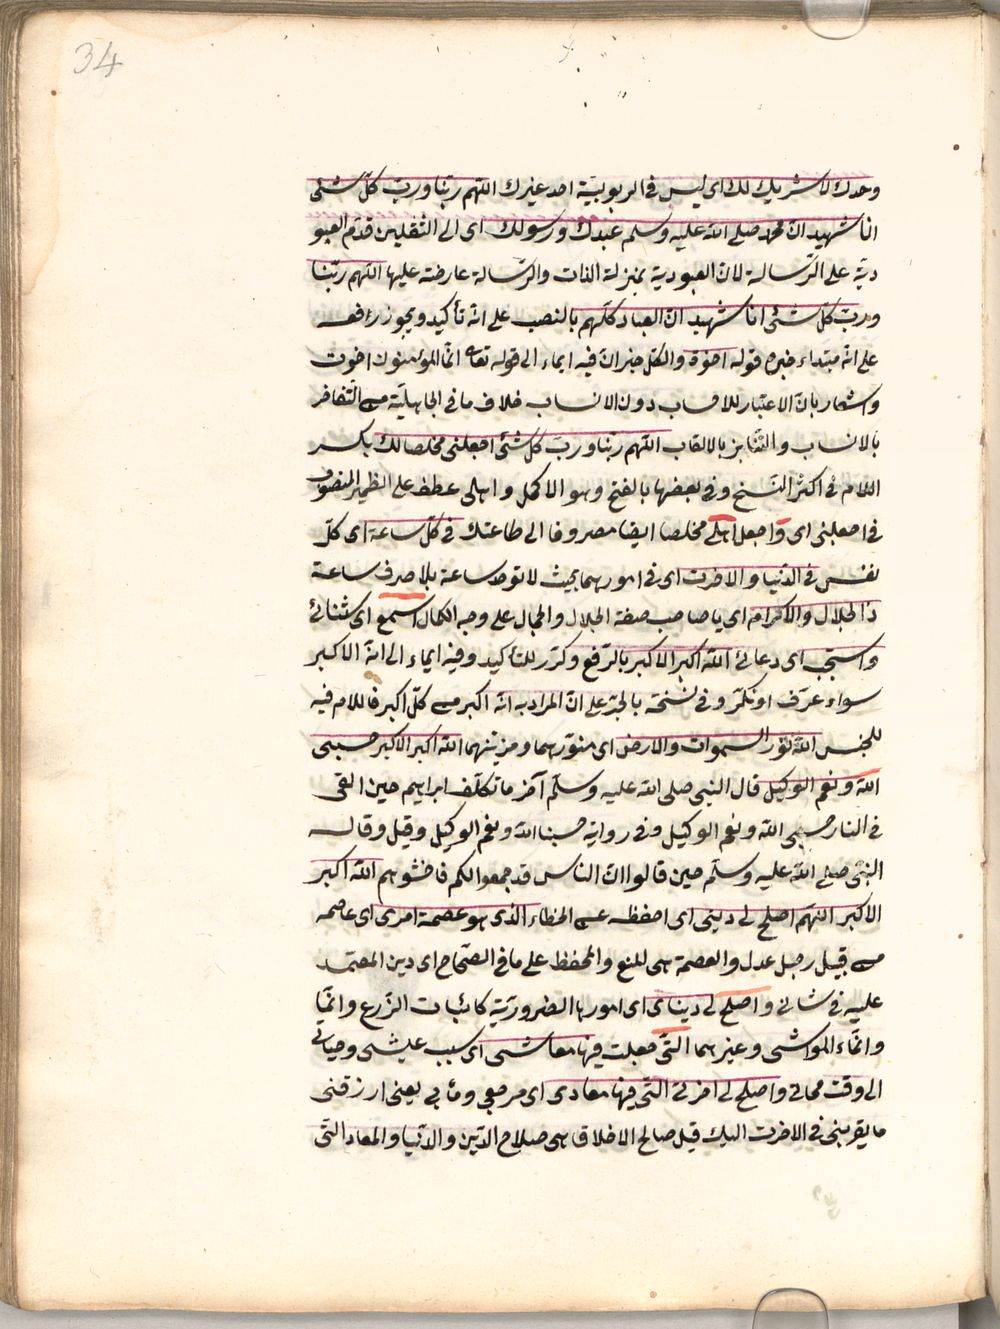 34
وحدك لا شريك لك اى ليس فى الربوبيّة احد غيرك اللّهم ربّنا وربّ كلّ شئ
انا شهيد انّ محمد صلى اللّه عليه وسلم عبدك ورسولك اى الى الثقلين قدّم العبو
ديّة على الرّسالة لانّ العبودية بمنزلة الذات والرّسالة عارضة عليها اللّهم ربّنا
وربّ كلّ شئ انا شهيد انّ العباد كلّهم بالنصب على انّه تأكيد ويجوز رفعه
على انّه مبتداء خبره قوله اخوة والكلّ خبر انّ فيه ايماء الى قوله تعا انّما المؤمنون اخوت
واشعار بانّ الاعتبار للاحساب دون الانساب خلاف ما فى الجاهليّة من التّفاخر
بالانساب والتّنابز بالالقاب اللّهم ربّنا وربّ كلّ شئ اجعلنى مخلصا لك بكسر
اللام فى اكثر النّسخ وفى بعضها بالفتح وهو الاكمل واهلى عطف على الضمير المنصوب
فى اجعلنى اى واجعل اهلى مخلصا ايضا مصروفا الى طاعتك فى كلّ ساعة اى كلّ
نفس فى الدّنيا والاخرت اى فى امورهما بحيث لا توجد ساعة بلا صرف ساعة
ذا الجلال والاكرام اى يا صاحب صفة الجلال والجمال على وجه الكمال اسمع اى ثنائى
واستجب اى دعائى اللّه اكبر الاكبر بالرّفع وكرّر للتأكيد وفيه ايماء الى انّه الاكبر
سواء عرّف او نكّر وفى نسخة بالجرّ على انّ المراد به انّه اكبر من كلّ اكبر فاللام فيه
للجنس اللّه نور السموات والارض اى منوّرهما ومزيّنهما اللّه اكبر الاكبر حسبى
اللّه ونعم الوكيل قال النبى صلى اللّه عليه وسلّم آخر ما تكلّم ابراهيم حين القى
فى النار حسبى اللّه ونعم الوكيل وفى رواية حسبنا اللّه ونعم الوكيل وقيل وقاله
النبى صلى اللّه عليه وسلّم حين قالوا انّ الناس قد جمعوا لكم فاخشوهم اللّه اكبر
الاكبر اللّهم اصلح لى دينى اى احفظه عن الخطاء الذى هو عصمة امرى اى عاصمه
من قبيل رجل عدل والعصمة هى للمنع والحفظ على ما فى الصّحاح اى دين المعتمد
عليه فى شانى واصلح لى دنياى اى امورها الضرورّية كانبات الزّرع وانمّا
وانماء المواشى وغيرهما التّى جعلت فيها معاشى اى سبب عليشى وحياتى
الى وقت مماتى واصلح لى اخرتى التّى فيها معادى اى مرجعى ومأبى يعنى ارزقنى
ما يقربنى فى الاخرت اليك قيل صالح الاخلاق هى صلاح الدّين والدّنيا والمعاد التّى